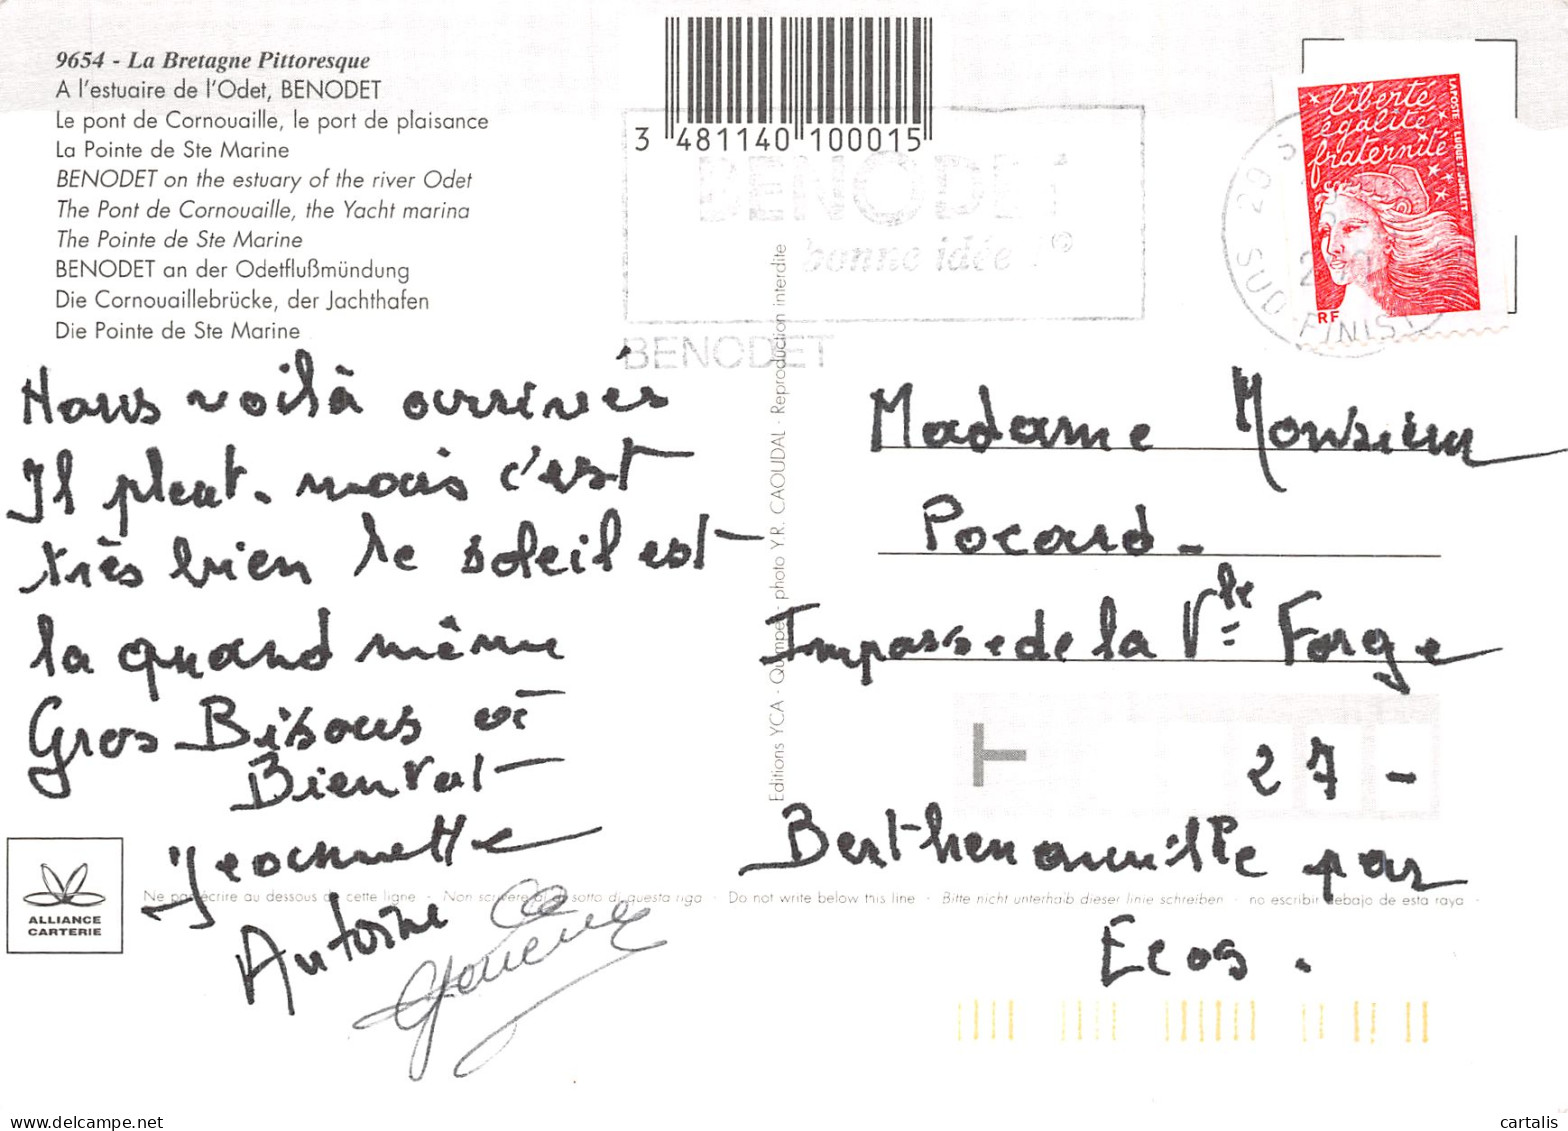 9654 - La Bretagne Pittoresque
A l'estuaire de l'Odet, BENODET
Le pont de Cornouaille, le port de plaisance
La Pointe de Ste Marine
BENODET on the estuary of the river Odet
The Pont de Cornouaille, the Yacht marina
The Pointe de Ste Marine
BENODET an der Odetflußmündung
Die Cornouaillebrücke, der Jachthafen
Die Pointe de Ste Marine
3 481140 100015
BENODET
bonne idée !
©
BENODET
29 SUD FINIST
liberté
égalité
fraternité
LA POSTE LUQUET JUMELET
RF
Nous voilà arrivés
Il pleut. mais c'est
très bien le soleil est
la quand même
Gros Bisous et
Bientot
Jeannette
Antoine
Editions YCA - Quimper - photo Y.R. CAOUDAL - Reproduction interdite
Madame Monsieur
Pocard -
Impasse de la Vlle Forge
T
27 -
Berthenonville par
Ecos.
ALLIANCE
CARTERIE
Ne pas écrire au dessous de cette ligne - Non scrivere al di sotto di questa riga - Do not write below this line - Bitte nicht unterhalb dieser linie schreiben - no escribir debajo de esta raya -
cartalis
delcampe.net